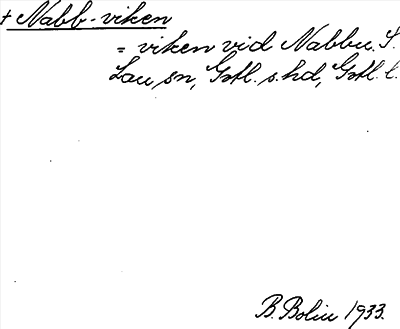 + Nabb-viken
= viken vid Nabbu. S.
Lau sn, Gotl. s. hd, Gotl. l.
B. Bolin 1933.